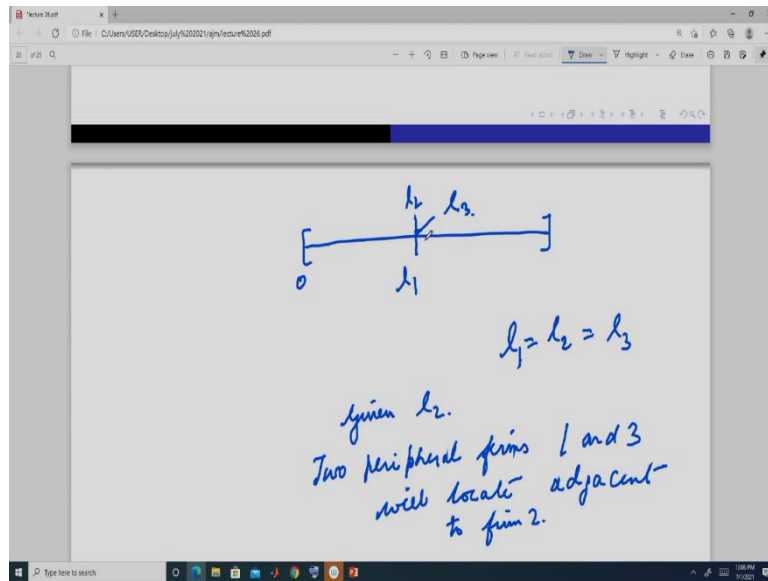 "lecture 26.pdf
File
C:/Users/USER/Desktop/july%202021/ajm/lecture%2026.pdf
20 of 25
Page view
Read aloud
Draw
Highlight
Erase
l2
l3.
0
l1
l1 = l2 = l3
Given l2.
Two peripheral firms 1 and 3
will locate adjacent
to firm 2.
Type here to search
12:06 PM
7/1/2021